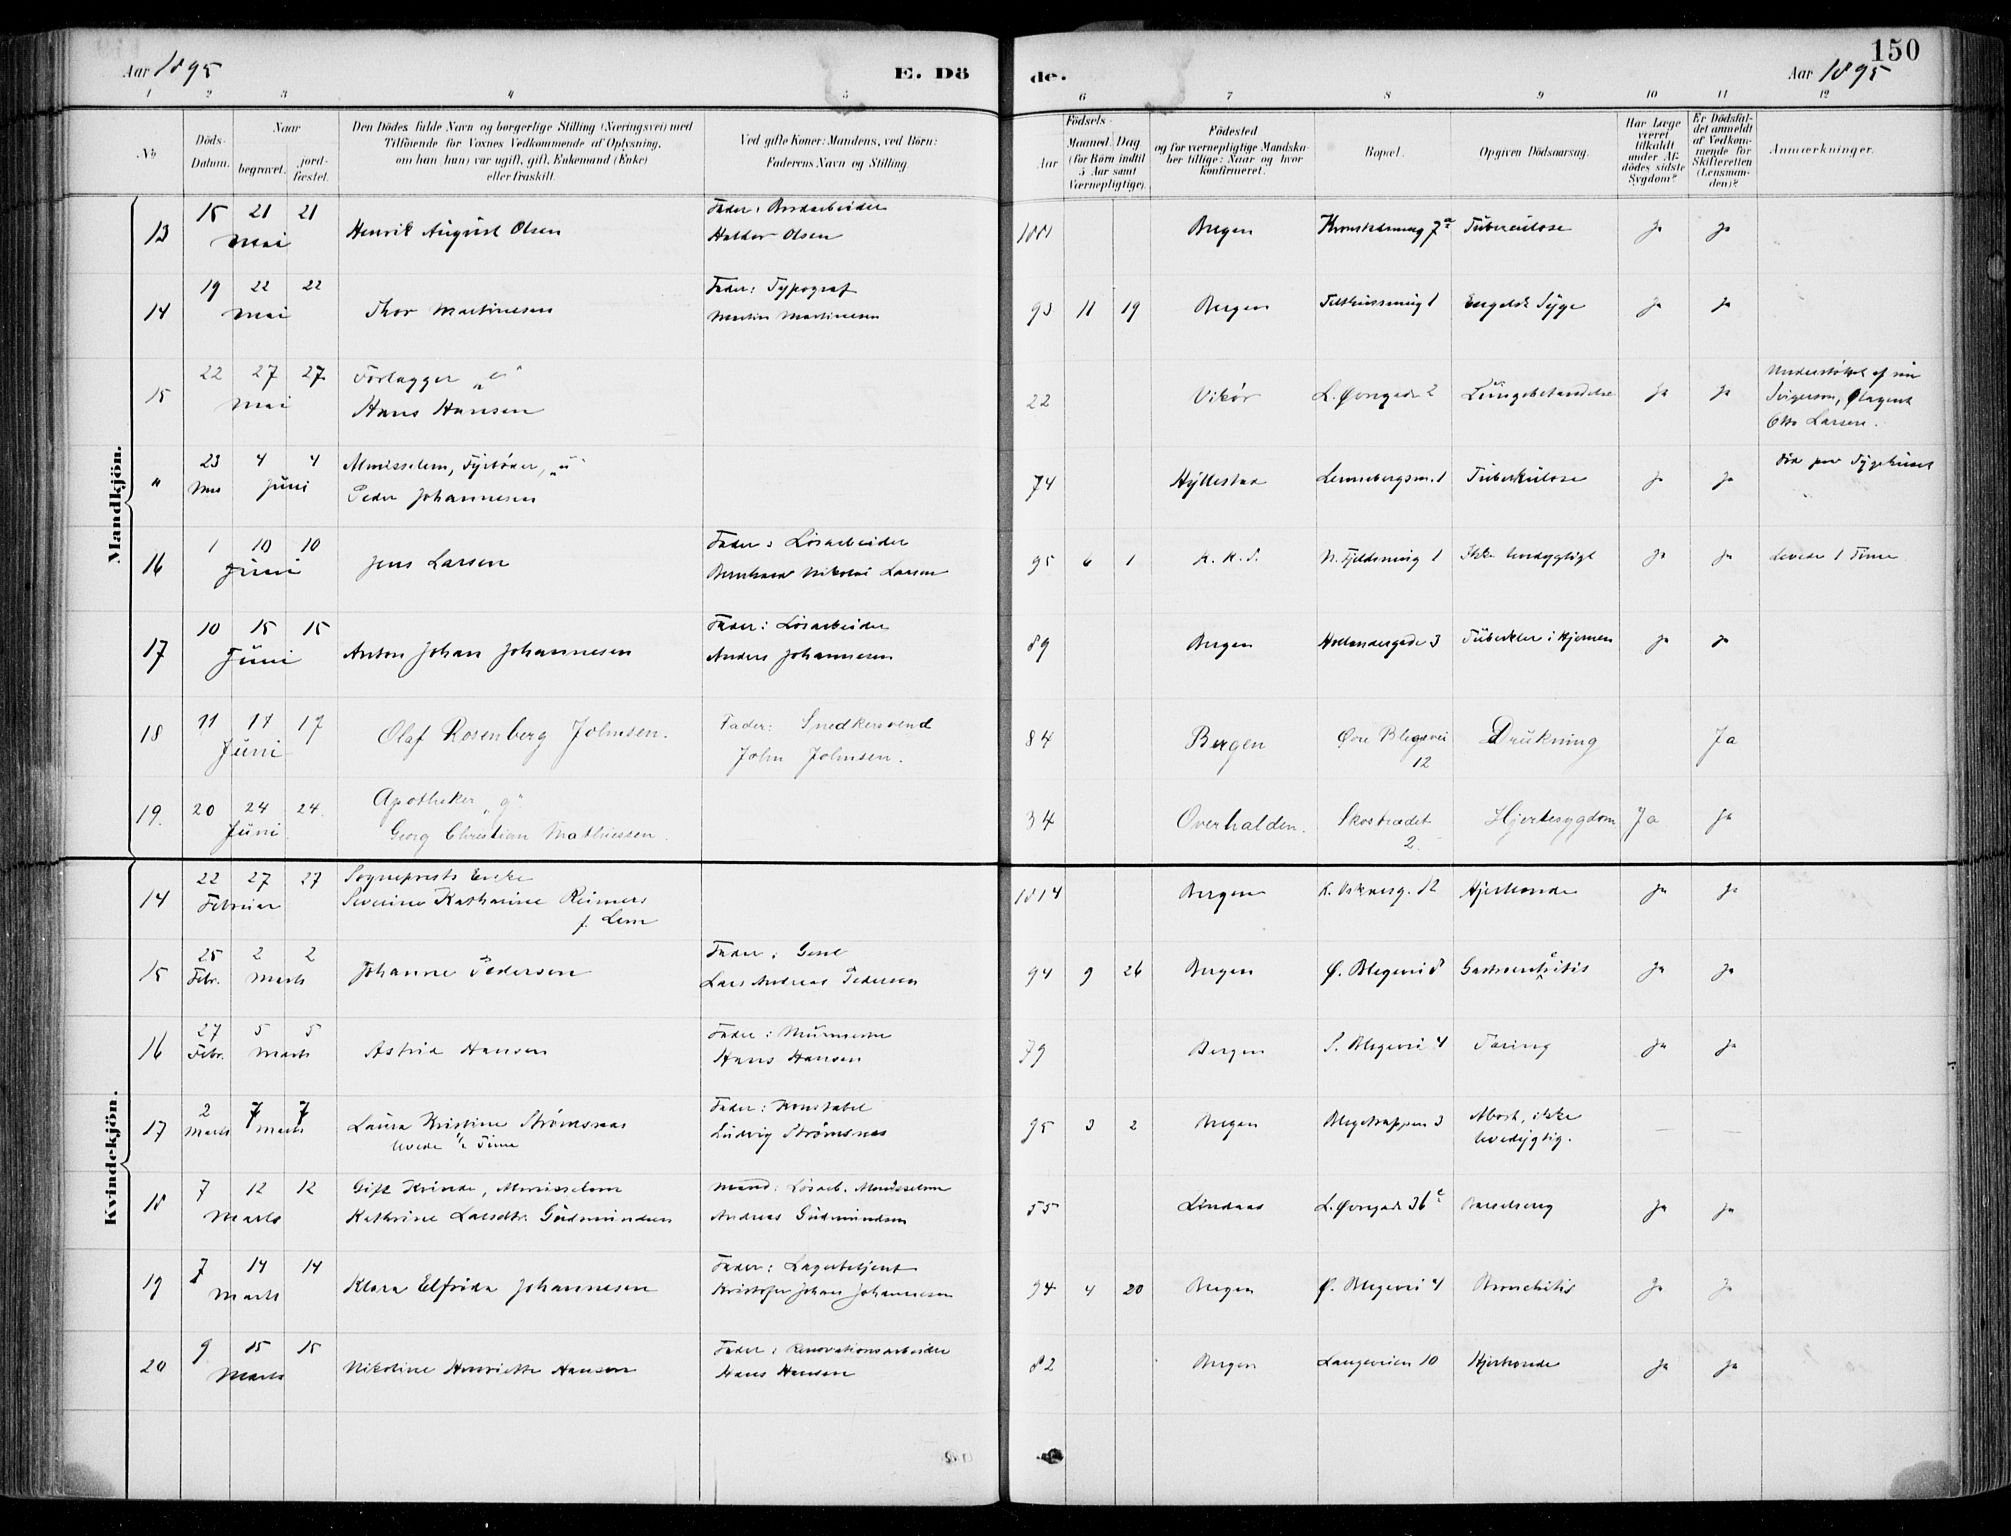 150
Aar 1895
E. Dö
de.
Aar 1895
1 2 3 4 5 6 7 8 9 10 11 12
No
Döds-Datum.
Naar
begravet.
jord-fæstet.
Den Dödes fulde Navn og borgerlige Stilling (Næringsvei) med
Tilföiende for Voxnes Vedkommende af Oplysning,
om han (hun) var ugift, gift, Enkemand (Enke)
eller fraskilt.
Ved gifte Koner: Mandens, ved Börn:
Faderens Navn og Stilling
Födsels-
Aar
Maaned Dag
(for Börn indtil
5 Aar samt
Værnepligtige).
Födested
og for værnepligtige Mandska-
ber tillige: Naar og hvor
konfirmeret.
Bopæl.
Opgiven Dödsaarsag.
Har Læge
været
tilkaldt
under Af-
dödes sidste
Sygdom?
Er Dödsfal-
det anmeldt
af Vedkom-
mende for
Skifteretten
(Lensman-
den)?
Anmærkninger.
Mandkjön.
13 15 21 21 Mai Henrik August Olsen Fader: Bordarbeider
Haldor Olsen 1881 Bergen 7a Tuberculose Ja Ja
14 19 22 22 Mai Thor Martinesen Fader: Typograf
Martin Martinesen 93 11 19 Bergen 1 Engelsk Syge Ja Ja
15 22 27 27 Mai Forlagger "e"
Hans Hansen 22 Vikør L. Øvregade 2 Lungebetændelse Ja Ja Understøttet af sin
Svigersøn, Ølagent
Otto Larsen.
" 23 Mai 4 4 Juni Almisselem, Fyrbøder, "u"
Peder Johannesen 74 Hyllestad Lennebergsm. 1 Tuberkulose Ja Ja Død paa Sygehuset
16 1 10 10 Juni Jens Larsen Fader: Løsarbeider
Bernhard Nikolai Larsen 95 6 1 K. K. S. N. Fjeldsmug 1 Ikke levedygtigt Ja Ja Levede 1 Time
17 10 15 15 Juni Anton Johan Johannesen Fader: Løsarbeider
Anders Johannesen 89 Bergen Hollendergade 3 Tuberkler i Hjernen Ja Ja
18 11 17 17 Juni Olaf Rosenberg Johnsen. Fader: Snedkersvend
John Johnsen. 84 Bergen Øvre Blegevei
12 Drukning Ja
19. 20 24 24. Juni Apotheker "g"
Georg Christian Mathiessen. 34 Overhalden. Skostrædet
2. Hjertesygdom Ja Ja
Kvindekjön.
14 22 27 27 Februar Sogneprests Enke
Severine Katharine Reimers
f. Lem 1814 Bergen 12 Hjerteonde Ja Ja
15 25 Febr. 2 2 Marts Johanne Pedersen Fader: Gesel
Lars Andreas Pedersen 94 9 26 Bergen Ø. Blegevei 8 Gastroenteritis Ja Ja
16 27 Febr. 5 5 Marts Astrid Hansen Fader: Murmester
Hans Hansen 79 Bergen S. Blegevei 4 Tæring Ja Ja
17 2 Marts 7 7 Marts Laura Kristine Strømsnes
levede ½ Time Fader: Konstabel
Ludvig Strømsnes 95 3 2 Bergen Blegetrappen 3 Abort, ikke
levedygtig. — —
18 7 12 12 Marts Gift Kvinde, Almisselem
Kathrine Larsdtr. Gudmundsen Mand: Løsarb. Almisselem
Andreas Gudmundsen 55 Lindaas L. Øvregade 36 Barselseng Ja Ja
19 7 14 14 Marts Klara Elfrida Johannesen Fader: Lagerbetjent
Kristofer Johan Johannesen 94 4 20 Bergen Ø. Blegevei 4 Bronchitis Ja Ja
20 9 15 15 Marts Nikoline Henriette Hansen Fader: Renovationsarbeider
Hans Hansen 82 Bergen Langeveien 10 Hjerteonde Ja Ja